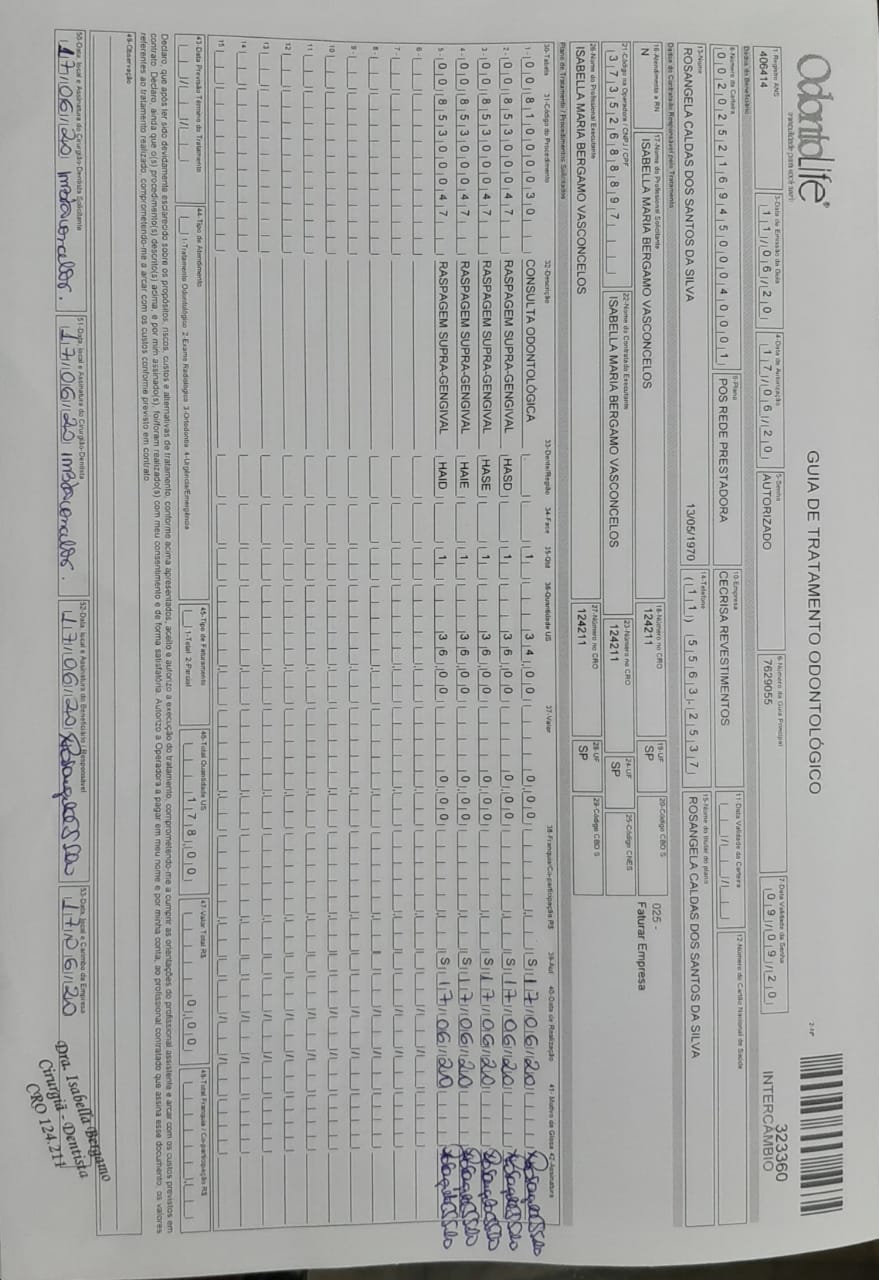 OdontoLife®
tranquilidade para você sorrir
GUIA DE TRATAMENTO ODONTOLÓGICO
323360
INTERCÂMBIO
1-Registro ANS
406414
3-Data de Emissão da Guia
11/06/20
4-Data de Autorização
17/06/20
5-Senha
AUTORIZADO
6-Número da Guia Principal
7629055
7-Data Validade da Senha
09/09/20
Dados do Beneficiário
8-Número da Carteira
00202521694500040001
9-Plano
POS REDE PRESTADORA
10-Empresa
CECRISA REVESTIMENTOS
11-Data Validade da Carteira
12-Número do Cartão Nacional de Saúde
13-Nome
ROSANGELA CALDAS DOS SANTOS DA SILVA
13/05/1970
14-Telefone
(11) 5563-2537
15-Nome do titular do plano
ROSANGELA CALDAS DOS SANTOS DA SILVA
Dados do Contratado Responsável pelo Tratamento
16-Atendimento a RN
N
17-Nome do Profissional Solicitante
ISABELLA MARIA BERGAMO VASCONCELOS
18-Número no CRO
124211
19-UF
SP
20-Código CBO S
025 -
Faturar Empresa
21-Código na Operadora / CNPJ / CPF
37352688897
22-Nome do Contratado Executante
ISABELLA MARIA BERGAMO VASCONCELOS
23-Número no CRO
124211
24-UF
SP
25-Código CNES
26-Nome do Profissional Executante
ISABELLA MARIA BERGAMO VASCONCELOS
27-Número no CRO
124211
28-UF
SP
29-Código CBO S
Plano de Tratamento / Procedimentos Solicitados
30-Tabela 31-Código do Procedimento 32-Descrição 33-Dente/Região 34-Face 35-Qtd 36-Quantidade US 37-Valor 38-Franquia/Co-participação R$ 39-Aut 40-Data de Realização 41- Motivo da Glosa 42-Assinatura
1- 00 81000030 CONSULTA ODONTOLÓGICA 1 34,00 0,00 S 17/06/20
2- 00 85300047 RASPAGEM SUPRA-GENGIVAL HASD 1 36,00 0,00 S 17/06/20
3- 00 85300047 RASPAGEM SUPRA-GENGIVAL HASE 1 36,00 0,00 S 17/06/20
4- 00 85300047 RASPAGEM SUPRA-GENGIVAL HAIE 1 36,00 0,00 S 17/06/20
5- 00 85300047 RASPAGEM SUPRA-GENGIVAL HAID 1 36,00 0,00 S 17/06/20
6-
7-
8-
9-
10
11
12
13
14
15
43-Data Previsão Término do Tratamento
44-Tipo de Atendimento
1-Tratamento Odontológico 2-Exame Radiológico 3-Ortodontia 4-Urgência/Emergência
45-Tipo de Faturamento
1-Total 2-Parcial
46-Total Quantidade US
178,00
47-Valor Total R$
0,00
48-Total Franquia / Co-participação R$
Declaro, que após ter sido devidamente esclarecido sobre os propósitos, riscos, custos e alternativas de tratamento, conforme acima apresentados, aceito e autorizo a execução do tratamento, comprometendo-me a cumprir as orientações do profissional assistente e arcar com os custos previstos em
contrato. Declaro, ainda que o(s) procedimento(s) descrito(s) acima, e por mim assinado(s), foi/foram realizado(s) com meu consentimento e de forma satisfatória. Autorizo a Operadora a pagar em meu nome e por minha conta, ao profissional contratado que assina esse documento, os valores
referentes ao tratamento realizado, comprometendo-me a arcar com os custos conforme previsto em contrato.
49-Observação
50-Data, local e Assinatura do Cirurgião-Dentista Solicitante
17/06/20
51-Data, local e Assinatura do Cirurgião-Dentista
17/06/20
52-Data, local e Assinatura do Beneficiário / Responsável
17/06/20
53-Data, local e Carimbo da Empresa
17/06/20
Dra. Isabella Bergamo
Cirurgiã - Dentista
CRO 124.211